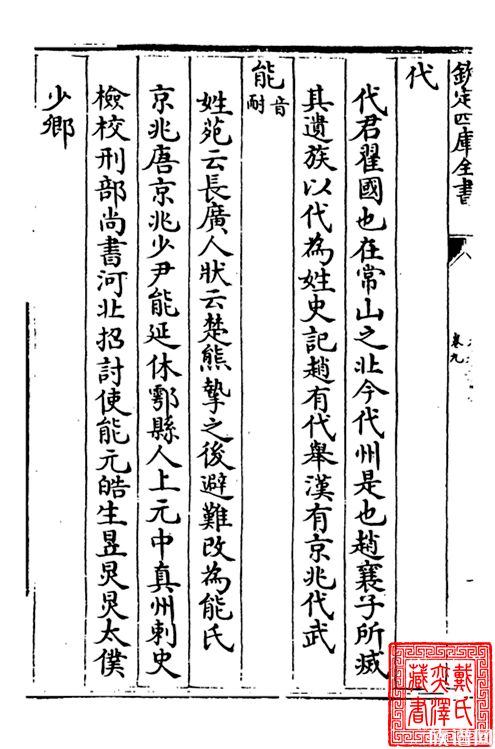 欽定四庫全書
卷九
代
代君翟國也在常山之北今代州是也趙襄子所滅
其遺族以代為姓史記趙有代舉漢有京兆代武
能音耐
姓苑云長廣人狀云楚熊摯之後避難改為能氏
京兆唐京兆少尹能延休鄠縣人上元中真州刺史
檢校刑部尚書河北招討使能元皓生昱炅炅太僕
少卿
戴氏
奕澤
藏書